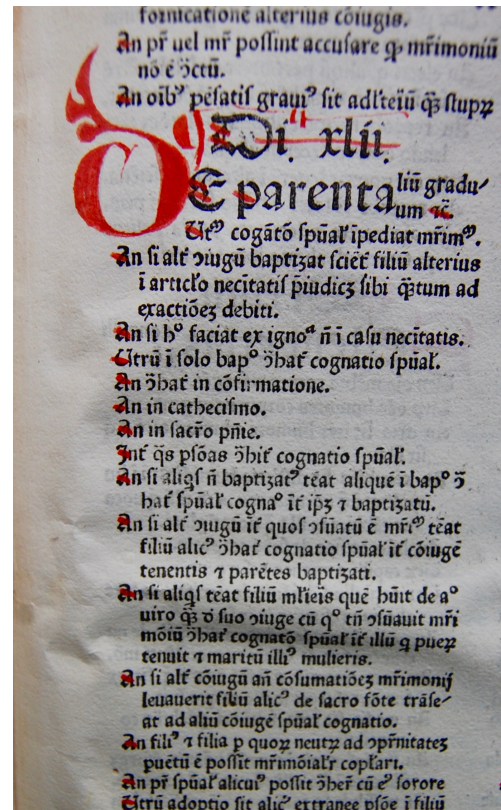 fornicatione alterius cōiugis.
An pr̄ uel mr̄ possint accusare ꝙ mr̄imoniū
nō ē ↄ̄ctū.
An oībꝰ pēsatis grauiꝰ sit adl'teīū q̄ꝫ stupꝝ
Di. xlii.
DE parentaliū gradu⸗
um ⁊c̄.
Utꝝ cogātō sp̄ual' īpediat mr̄imꝰ.
An si alt̄ ↄiugū baptizat sciēt̄ filiū alterius
ī articl'o nec̄itatis p̄iudicꝫ sibi q̄ꝫtum ad
exactiōeꝫ debiti.
An si hº faciat ex ignoª n̄ ī casu nec̄itatis.
Utrū ī solo bapº ↄ̄hat̄ cognatio sp̄ual'.
An ↄ̄hat̄ in cōfirmatione.
An in cathecismo.
An in sacr̄o pn̄ie.
Int̄ q̄s ps̄oas ↄ̄hit̄ cognatio sp̄ual'.
An si aliqs n̄ baptizatꝰ teāt aliquē ī bapº ↄ̄
hat̄ sp̄ual' cognaº īt̄ ip̄ꝫ ⁊ baptizatū.
An si alt̄ ↄiugū īt̄ quos ↄsūatū ē mr̄iꝰ teāt
filiū alicꝰ ↄ̄hat̄ cognatio sp̄ual' īt̄ cōiugē
tenentis ⁊ parētes baptizati.
An si aliqs teāt filiū ml'ieis quē hūit de aº
uiro q̄ꝫ ď suo ↄiuge cū qº tn̄ ↄsūauit mr̄i
mōiū ↄ̄hat̄ cognatō sp̄ual' īt̄ illū q pueꝝ
tenuit ⁊ maritū illiꝰ mulieris.
An si alt̄ cōiugū an̄ cōsumatiōeꝫ mr̄imonij
leuauerit filiū alicꝰ de sacro fōte trāse⸗
at ad aliū cōiugē sp̄ual' cognatio.
An filiꝰ ⁊ filia p quoꝝ neutꝝ ad ↄpr̄nitateꝫ
puētū ē possīt mr̄imōial'r copl'ari.
An pr̄ sp̄ual' alicuiꝰ possit ↄ̄her̄ cū eꝰ sorore
Utrū adoptio sit alicꝰ extranee ps̄oe ī filiū